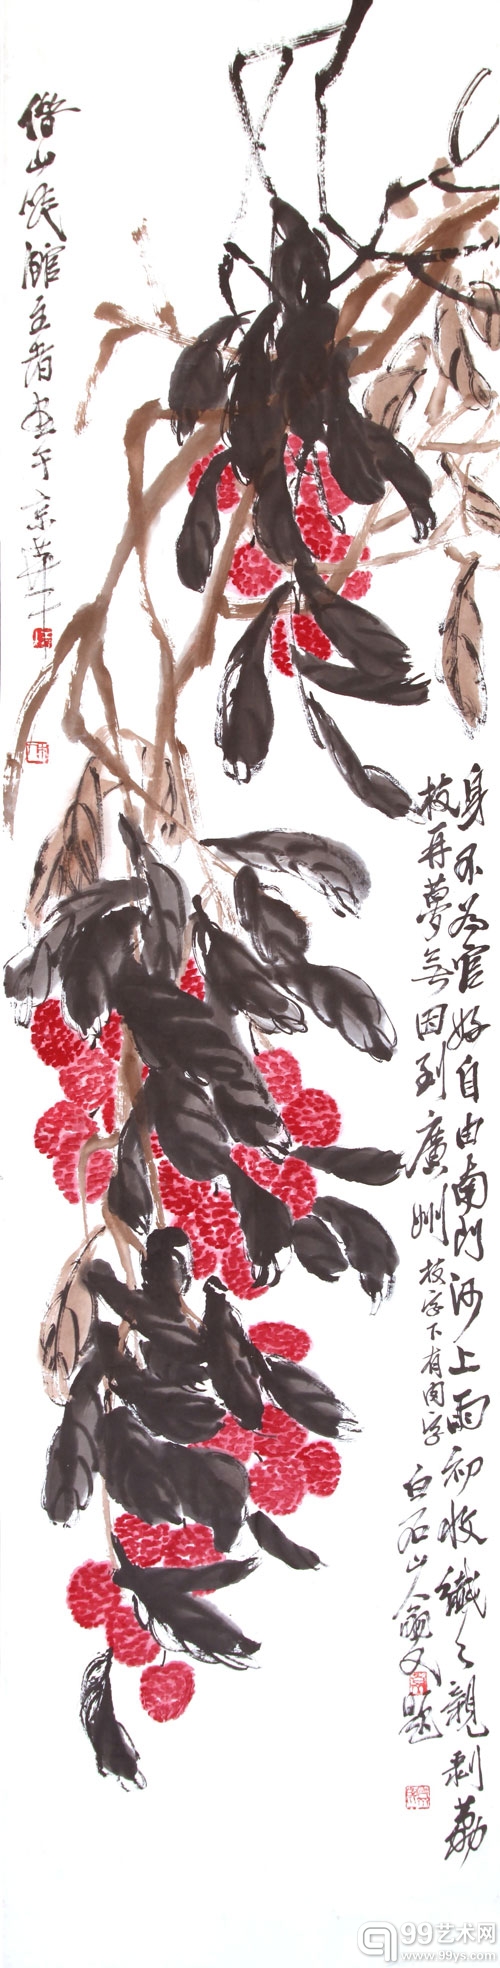 身不为官好自由南門河上雨初收纖〻親剥荔
枝再夢無因到廣州
枝字下有字
白石山人又題
借山吟館主者画于京華
99艺术网
www.99ys.com